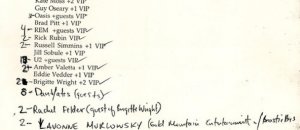 Kate Moss +2 VIP
Guy Oseary +1 VIP
3- Oasis +guests VIP
Brad Pitt +1 VIP
4- REM +guests VIP
2- Rick Rubin VIP
2- Russell Simmins +1 VIP
Jill Sobule +1 VIP
U2 +guests VIP
2- Amber Valetta +1 VIP
Eddie Vedder +1 VIP
2 Brigitte Wright +2 VIP
8- (guests)
2- Rachel Felder (guest of Brigitte Wright)
2- LAVONNE MURLOWSKY (Gold Mountain Entertainment /